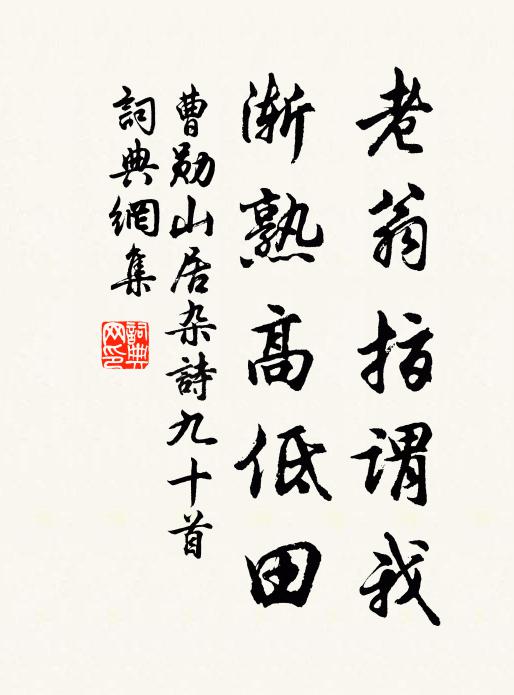 老翁指謂我
漸熟高低田
曹勛山居杂詩九十首
詞典網集
詞典網印